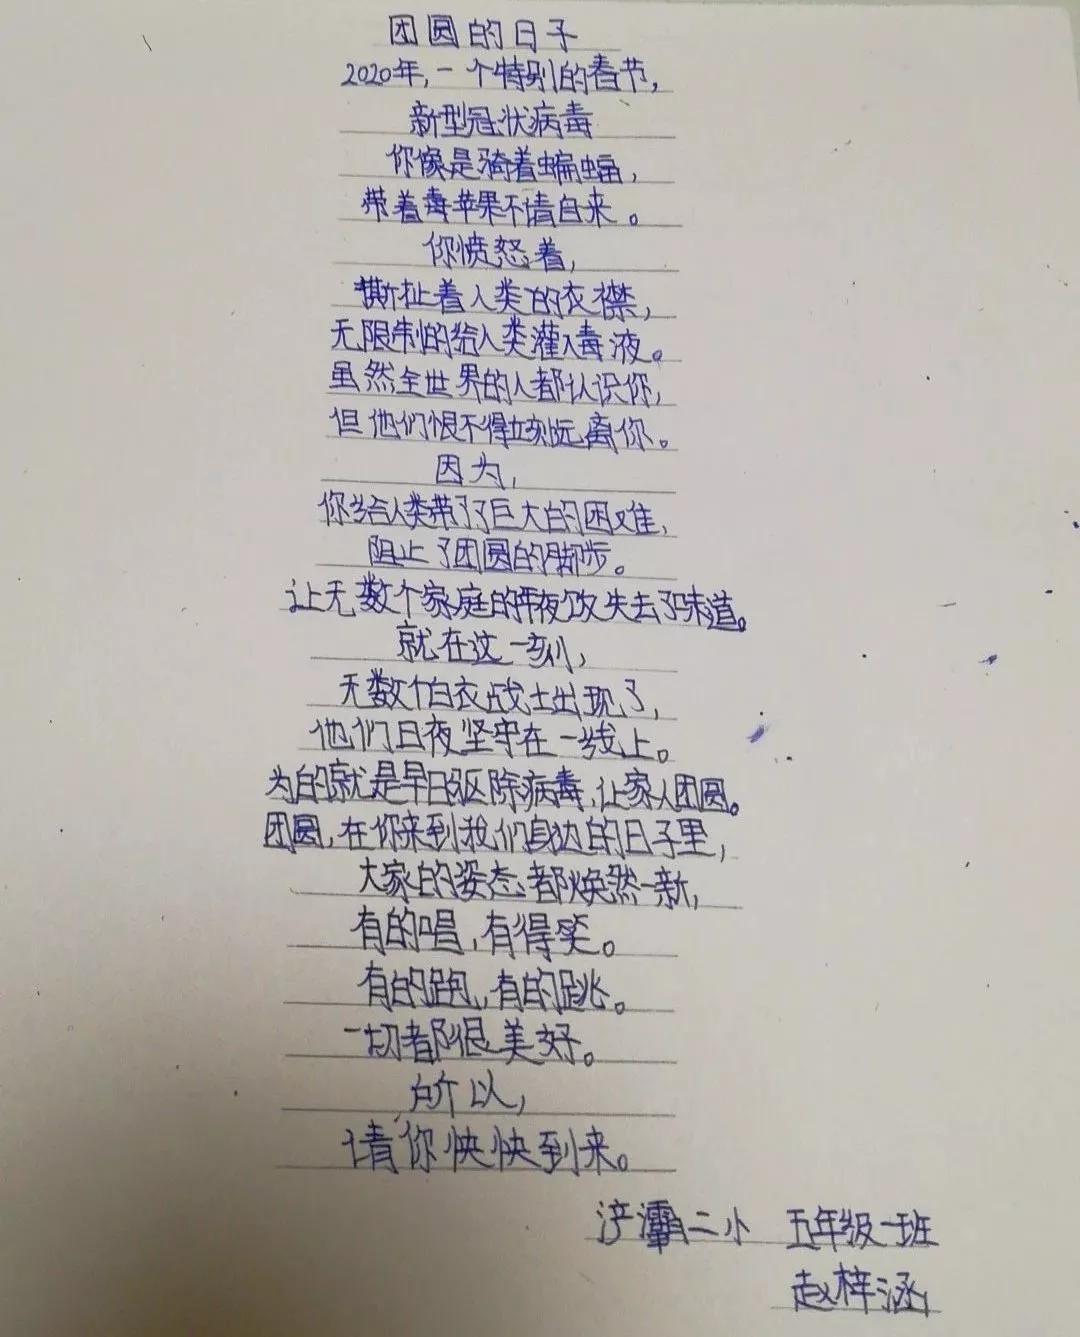 团圆的日子
2020年,一个特别的春节,
新型冠状病毒
你像是骑着蝙蝠,
带着毒苹果不请自来。
你愤怒着,
撕扯着人类的衣襟,
无限制的给人类灌入毒液。
虽然全世界的人都认识你,
但他们恨不得立刻远离你。
因为,
你给人类带了了巨大的困难,
阻止了团圆的脚步。
让无数个家庭的年夜饭失去了味道。
就在这一刻,
无数个白衣战士出现了,
他们日夜坚守在一线上。
为的就是早日驱除病毒,让家人团圆。
团圆,在你来到我们身边的日子里,
大家的姿态都焕然一新,
有的唱,有得笑。
有的跑,有的跳。
一切都很美好。
所以,
请你快快到来。
浐灞二小 五年级一班
赵梓涵